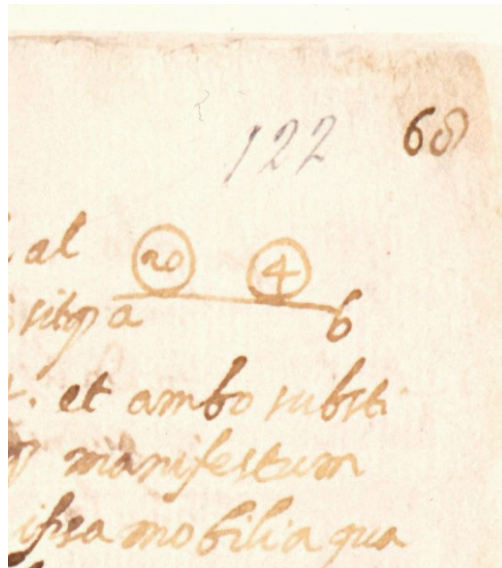 122 68
al
20 4
sitq a b
et ambo substi
manifestum
ipsa mobilia qua